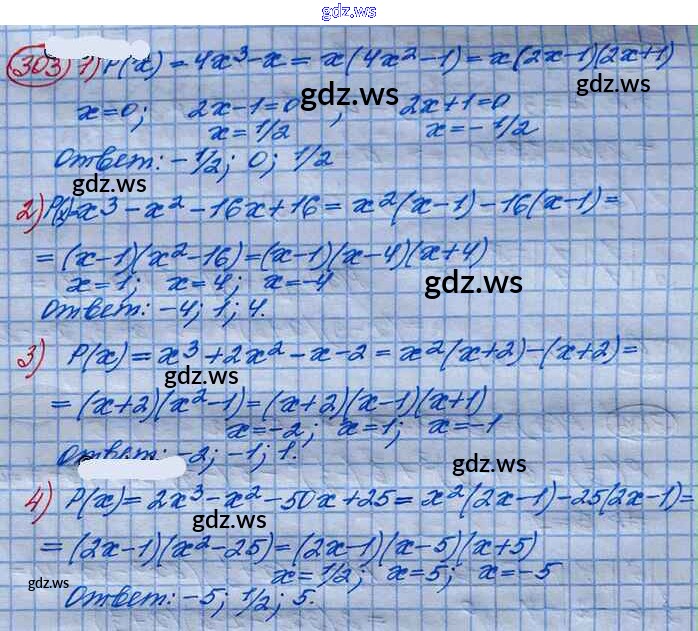 gdz.ws
303) 1) P(x) = 4x³ - x = x(4x² - 1) = x(2x-1)(2x+1)
gdz.ws
x=0; 2x-1=0; 2x+1=0
gdz.ws
x=1/2 x=-1/2
Ответ: -1/2; 0; 1/2
gdz.ws
2) P(x)=x³ - x² - 16x + 16 = x²(x-1) - 16(x-1) =
= (x-1)(x²-16) = (x-1)(x-4)(x+4)
x=1; x=4; x=-4
gdz.ws
Ответ: -4; 1; 4.
3) P(x) = x³ + 2x² - x - 2 = x²(x+2) - (x+2) =
gdz.ws
= (x+2)(x²-1) = (x+2)(x-1)(x+1)
x=-2; x=1; x=-1
Ответ: -2; -1; 1.
gdz.ws
4) P(x) = 2x³ - x² - 50x + 25 = x²(2x-1) - 25(2x-1) =
gdz.ws
= (2x-1)(x²-25) = (2x-1)(x-5)(x+5)
x=1/2; x=5; x=-5
gdz.ws
Ответ: -5; 1/2; 5.